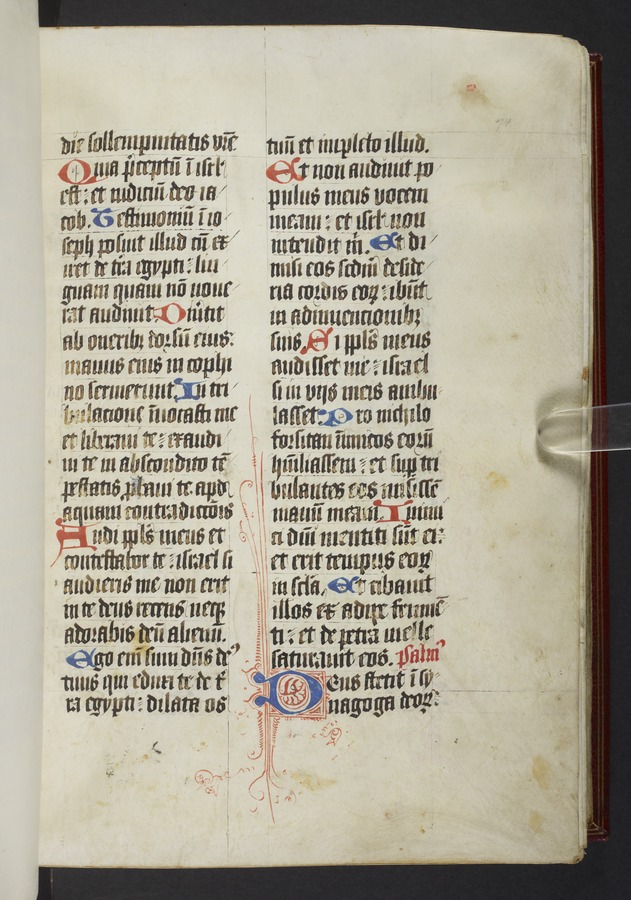 die sollempnitatis vr̄e
Quia p̄ceptū ī isrl̄
est: et iudiciū deo ia
cob. Testimoniū ī io
seph posuit illud cū ex
iret de t̄ra egypti: lin
guam quam nō noue
rat audiuit. Diu̇tit
ab oneribꝫ dorsū eius:
manus eius in cophi
no seruierunt. In tri
bulacione īuocasti me
et liberaui te: exaudi
ui te in abscondito tē
pestatis ꝓbaui te apd̄
aquam contradictōis
Audi ppl̄s meus et
contestabor te: israel si
audieris me non erit
in te deus recens neqꝫ
adorabis deū alienū.
Ego em̄ sum dn̄s de⁹
tuus qui eduxi te de t̄
ra egypti: dilata os
tuū et impleto illud.
Et non audiuit po
pulus meus vocem
meam: et isrl̄ non
intendit m̄. Et di
misi eos scdm̄ deside
ria cordis eoꝝ: ibūt
in adinuencionibꝫ
suis. Si ppl̄s meus
audisset me: israel
si in vijs meis ambu
lasset: Pro nichilo
forsitan īimicos eorū
hūiliassem: et sup tri
bulantes eos misissē
manū meam. Inimi
ci dn̄i mentiti sūt ei:
et erit tempus eoꝝ
in scl̄a. Et cibauit
illos ex adipe frumē
ti: et de petra melle
saturauit eos. Psalm⁹
Deus stetit ī sy
nagoga deoꝝ: